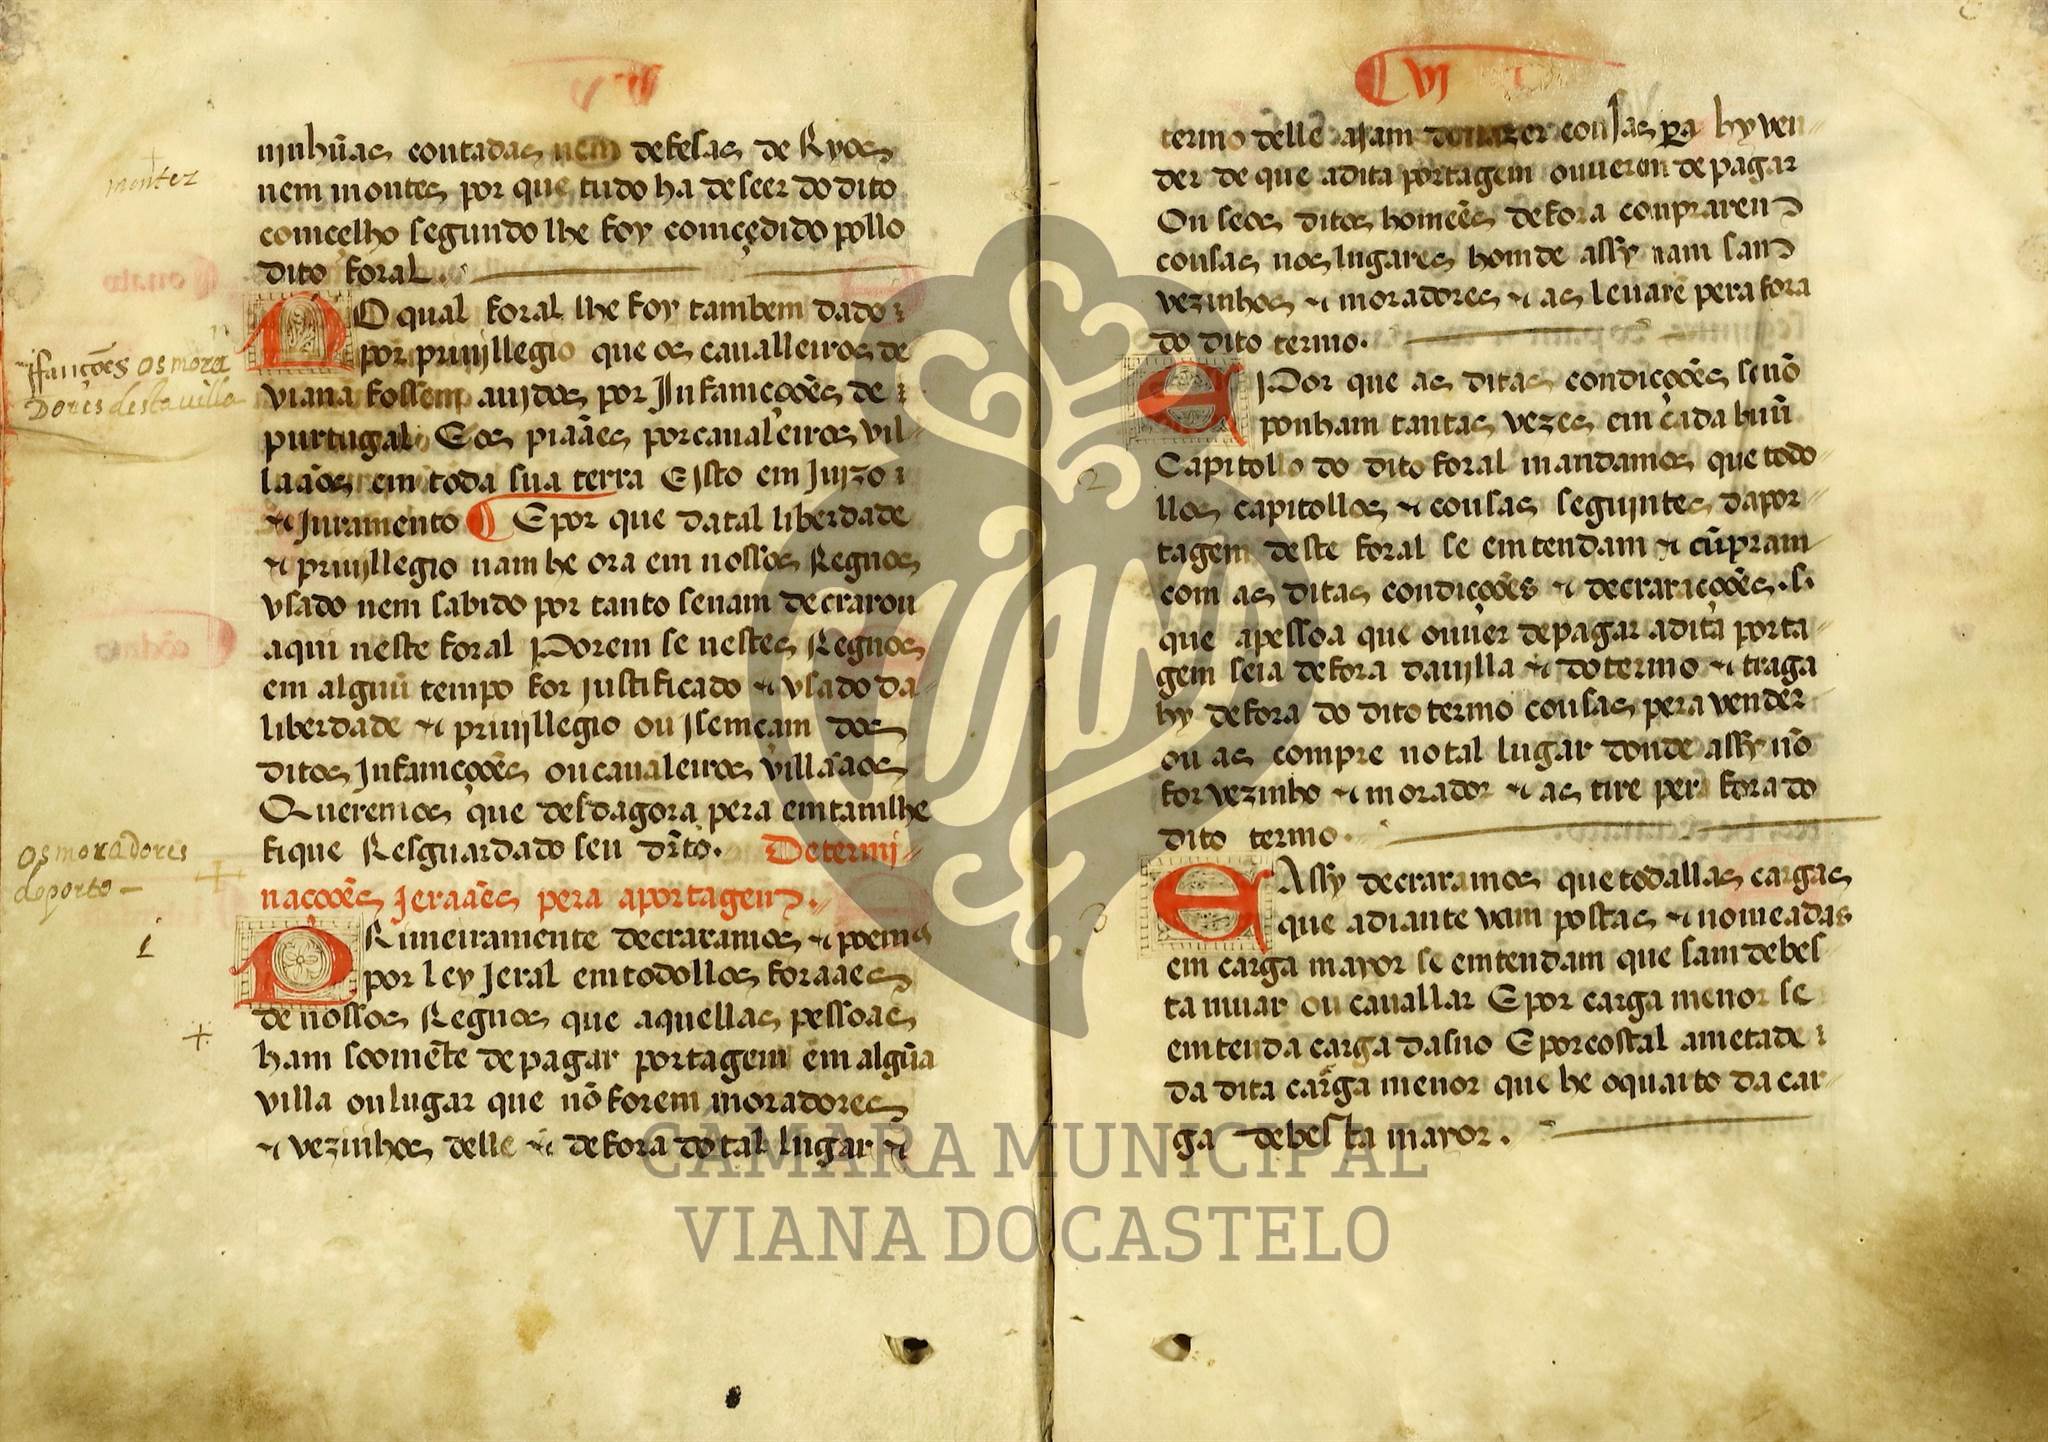 montez
njnhũas coutadas nem defesas de Ryos
nem montes por que tudo ha de seer do dito
comcelho segundo lhe foy comcedido pollo
dito foral.
NO qual foral lhe foy tambem dado
por priujllegio que os caualleiros de
viana fossem aujdos por Jnfamções de
purtugal E os piaães por caualeiros vil
laãos em toda sua terra E jsto em Juyzo
⁊ Juramento ¶ E por que da tal liberdade
⁊ priujllegio nam he ora em nossos Regnos
vsado nem sabido por tanto se nam decrarou
aqui neste foral Porem se nestes Regnos
em alguũ tempo for justificado ⁊ vsado da
liberdade ⁊ priujllegio ou jsemçam dos
ditos Jnfamçoões ou caualeiros villaãos
Queremos que desdagora pera emtam lhe
fique Resguardado seu dr̃to. Determj
naçoões jeraaẽs pera a portagem.
PRimeiramente decraramos ⁊ poemos
por ley jeral em todollos foraaes
de nossos Regnos que aquellas pessoas
ham soomẽte de pagar portagem em algũa
villa ou lugar que nõ forem moradores
⁊ vezinhos delle ⁊ de fora do tal lugar ⁊
jfançoẽs os mora
Dores desta uilla
os moradores
do porto
1
CVJ
termo delle ajam de trazer cousas pera hy ven
der de que a dita portagem ouuerem de pagar
Ou se os ditos homeẽs de fora conprarem
cousas nos lugares homde assy nam sam
vezinhos ⁊ moradores ⁊ as leuarẽ pera fora
do dito termo.
E Por que as ditas condiçoões se nõ
ponham tantas vezes em cada huũ
2
Capitollo do dito foral mandamos que todo
llos capitollos ⁊ cousas seguintes da por
tagem deste foral se emtendam ⁊ cũpram
com as ditas condiçoões ⁊ decraraçoões. s.
que a pessoa que ouuer de pagar a dita porta
gem seia de fora da vjlla ⁊ do termo ⁊ traga
hy de fora do dito termo cousas pera vender
ou as compre no tal lugar donde assy nõ
for vezinho ⁊ morador ⁊ as tire pera fora do
dito termo.
E Assy decraramos que todallas cargas
3
que adiante vam postas ⁊ nomeadas
em carga mayor se emtendam que sam de bes
ta muar ou cauallar E por carga menor se
emtenda carga dasno E por costal a metade
da dita carrga menor que he o quarto da car
ga de besta mayor.
CÂMARA MUNICIPAL
VIANA DO CASTELO